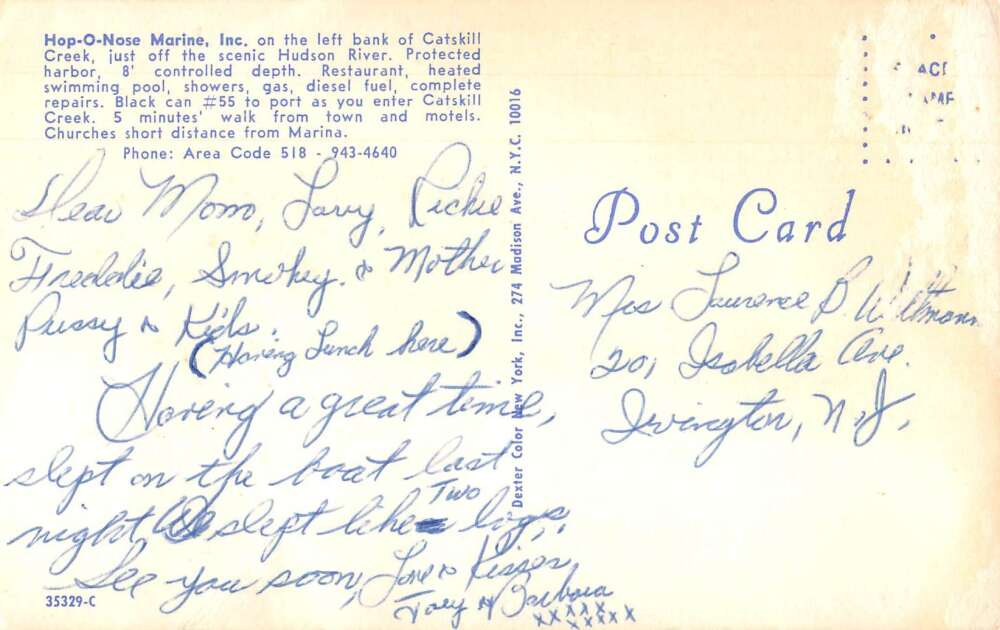 Hop-O-Nose Marine, Inc. on the left bank of Catskill
Creek, just off the scenic Hudson River. Protected
harbor, 8' controlled depth. Restaurant, heated
swimming pool, showers, gas, diesel fuel, complete
repairs. Black can #55 to port as you enter Catskill
Creek. 5 minutes' walk from town and motels.
Churches short distance from Marina.
Phone: Area Code 518 - 943-4640
Dear Mom, Larry, Richie
Freddie, Smokey. & Mother
Pussy & Kids.
(Having Lunch here)
Having a great time,
slept on the boat last
night, We slept like Two logs,
See you soon, Love & Kisses
& Barbara
xxxxx
xxxxx
35329-C
Dexter Color New York, Inc., 274 Madison Ave., N.Y.C. 10016
Post Card
Mrs Laurence B. Wittmann
201 Isabella Ave.
Irvington, N.J.